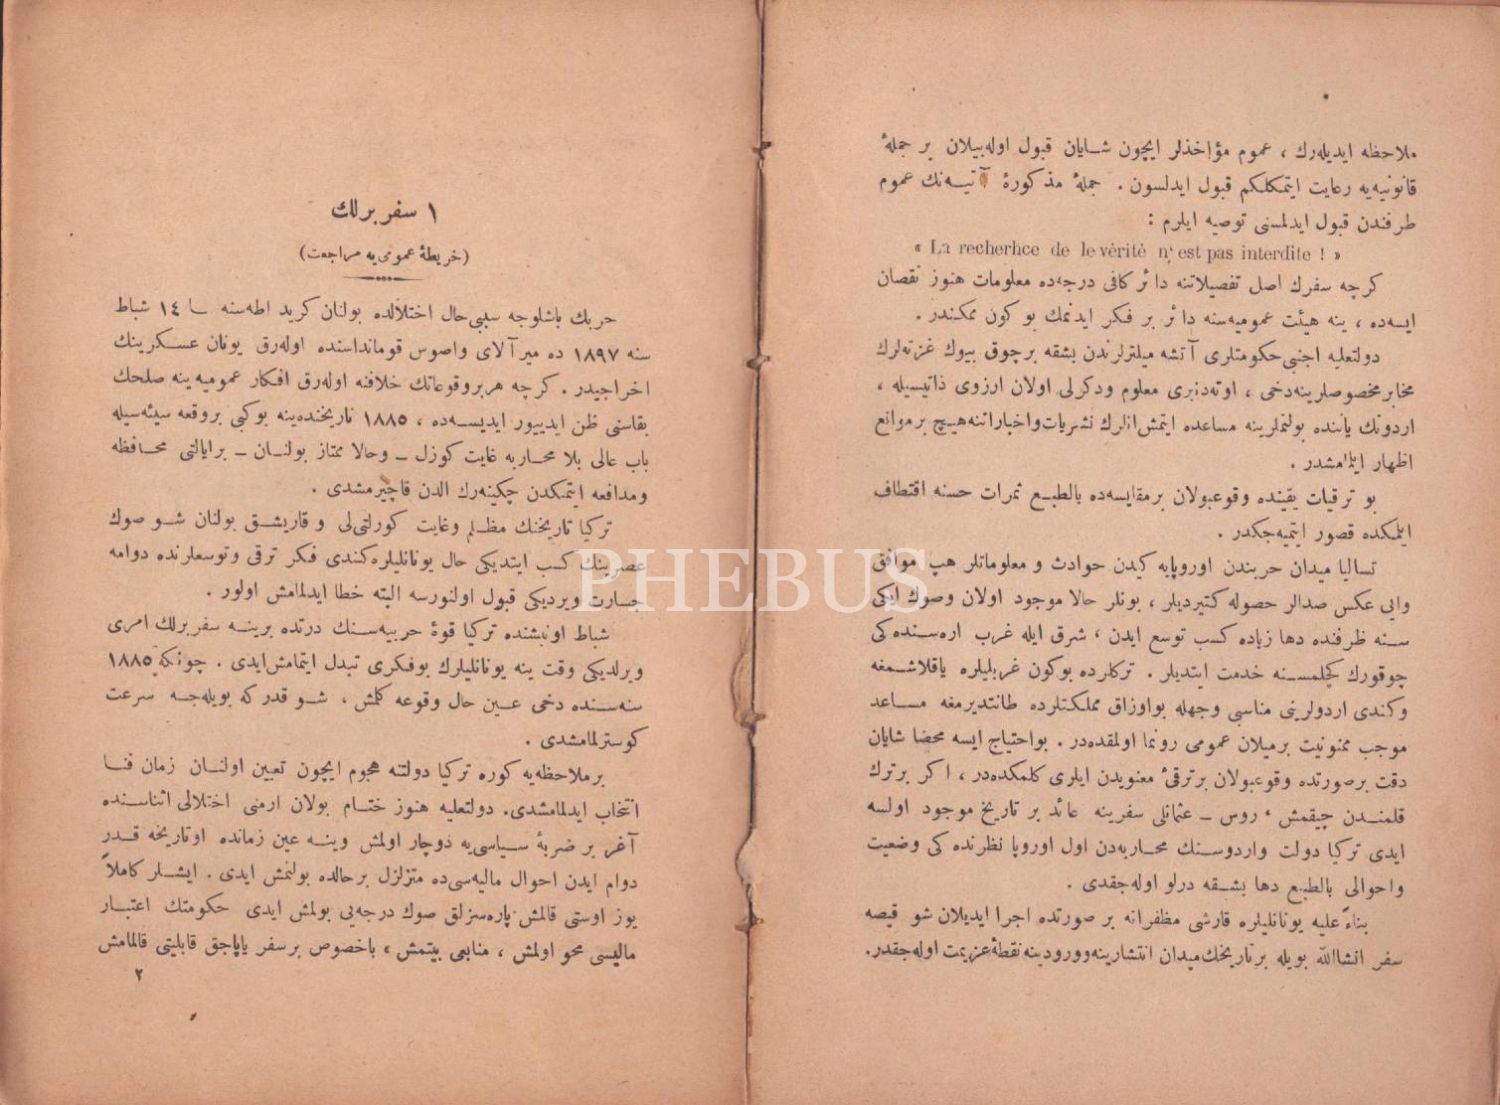 ملاحظه ایدیله‌رك ، عموم مؤاخذلر ایچون شایان قبول اوله‌بیلان بر جمله‌ٔ
قانونیه‌یه رعایت ایتمكلكم قبول ایدلسون . جمله‌ٔ مذكورهٔ آتیه‌نك عموم
طرفندن قبول ایدلمسنی توصیه ایلرم :
« La recherhce de le vérité n'est pas interdite ! »
كرچه سفرك اصل تفصیلاتنه دائر كافی درجه‌ده معلومات هنوز نقصان
ایسه‌ده ، ینه هیئت عمومیه‌سنه دائر بر فكر ایدنمك بوكون ممكندر .
دولتعلیه اجنبی حكومتلری آتشه میلترلرندن بشقه برچوق بیوك غزته‌لرك
مخابر مخصوصلرینه‌دخی ، اوته‌دنبری معلوم ودكرلی اولان ارزوی ذاتیسیله ،
اردونك یاننده بولنملرینه مساعده ایتمش انلرك نشریات واخباراتنه هیچ برموانع
اظهار ایلمامشدر .
بو ترقیات یقینده وقوعبولان برمقایسه‌ده بالطبع ثمرات حسنه اقتطاف
ایلمكده قصور ایتمیه‌جكدر .
تسالیا میدان حربندن اوروپایه كیدن حوادث و معلوماتلر هپ موافق
وایی عكس صدالر حصوله كتیردیلر ، بونلر حالا موجود اولان وصوك ایكی
سنه ظرفنده دها زیاده كسب توسع ایدن ، شرق ایله غرب اره‌سنده‌كی
چوقورك كچلمسنه خدمت ایتدیلر . تركلرده بوكون غربلیلره یاقلاشمغه
وكندی اردولرینی مناسبی وجهله بواوزاق مملكتلرده طانتدیرمغه مساعد
موجب ممنونیت برمیلان عمومی رونما اولمقده‌در . بواحتیاج ایسه محضا شایان
دقت برصورتده وقوعبولان برترقیٔ معنویدن ایلری كلمكده‌در ، اكر برترك
قلمندن چیقمش ، روس ـ عثمانلی سفرینه عائد بر تاریخ موجود اولسه
ایدی تركیا دولت واردوسنك محاربه‌دن اول اوروپا نظرنده‌كی وضعیت
واحوالی بالطبع دها بشقه درلو اوله‌جقدی .
بناءً علیه یونانلیلره قارشی مظفرانه بر صورتده اجرا ایدیلان شو قیصه
سفر انشاالله بویله برتاریخك میدان انتشارینه‌وورودینه نقطهٔ عزیمت اوله‌جقدر.
١ سفربرلك
(خریطهٔ عمومی‌یه مراجعت)
حربك باشلوجه سببی حال اختلالده بولنان كرید اطه‌سنه ١٤ شباط
سنه ١٨٩٧ ده میرآلای واصوس قومانداسنده اوله‌رق یونان عسكرینك
اخراجیدر . كرچه هربروقوعاتك خلافنه اوله‌رق افكار عمومیه ینه صلحك
بقاسنی ظن ایدییور ایدیسه‌ده ، ١٨٨٥ تاریخنده‌ینه بوكبی بروقعه سیئه‌سیله
باب عالی بلا محاربه غایت كوزل ـ وحالا ممتاز بولنان ـ برایالتی محافظه
ومدافعه ایتمكدن چكینه‌رك الدن قاچیرمشدی .
تركیا تاریخنك مظلم وغایت كورلتی‌لی و قاریشق بولنان شو صوك
عصرینك كسب ایتدیكی حال یونانلیلره كندی فكر ترقی وتوسعلرنده دوامه
جسارت ویردیكی قبول اولنورسه البته خطا ایدلمامش اولور .
شباط اونبشنده تركیا قوهٔ حربیه‌سنك درتده برینه سفربرلك امری
ویرلدیكی وقت ینه یونانلیلرك بوفكری تبدل ایتمامش‌ایدی . چونكه ١٨٨٥
سنه‌سنده دخی عین حال وقوعه كلمش ، شو قدر كه بویله‌جه سرعت
كوسترلمامشدی .
برملاحظه‌یه كوره تركیا دولتنه هجوم ایچون تعیین اولنان زمان فنا
انتخاب ایدلمامشدی. دولتعلیه هنوز ختام بولان ارمنی اختلالی اثناسنده
آغر بر ضربهٔ سیاسی‌یه دوچار اولمش وینه عین زمانده اوتاریخه قدر
دوام ایدن احوال مالیه‌سی‌ده متزلزل برحالده بولنمش ایدی . ایشلر كاملاً
یوز اوستی قالمش پاره‌سزلق صوك درجه‌یی بولمش ایدی حكومتك اعتبار
مالیسی محو اولمش ، منابعی بیتمش ، باخصوص برسفر یاپاجق قابلیتی قالمامش
٢
PHEBUS